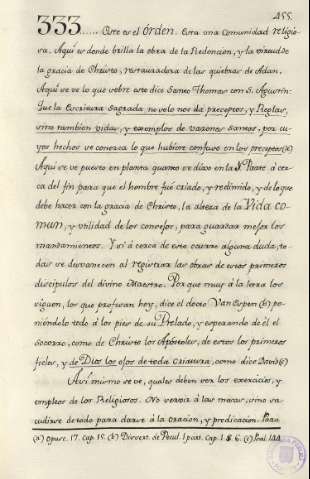 455.
333..... Este es el orden. Esta una Comunidad religio
sa. Aqui es donde brilla la obra de la Redencion, y la virtud de
la gracia de Christo, restauradora de las quiebras de Adan.
Aqui se ve lo que sobre este dice Santo Thomas con S. Agustin:
Que la Escritura Sagrada no solo nos da preceptos, y Reglas,
sino tambien vidas, y exemplos de varones santos, por cu
yos hechos se conozca lo que hubiere confuso en los preceptos (a)
Aqui se ve puesto en planta quanto se dixo en la Parte à cer
ca del fin para que el hombre fué criado, y redimido, y de lo que
debe hacer con la gracia de Christo, la alteza de la Vida co
mun, y utilidad de los consejos, para guardar mejor los
mandamientos. Y si à cerca de esto ocurre alguna duda, to
das se desvanecen al registrar las obras de estos primeros
discipulos del divino Maestro. Por que muy à la letra los
siguen, los que profesan hoy, dice el docto Van Espen (b) po
niendolo todo à los pies de su Prelado, y esperando de él el
socorro, como de Christo los Apóstoles, de estos los primeros
fieles, y de Dios los ojos de toda criatura, como dice David (c)
Asi mismo se ve, quales deben ser los exercicios, y
empleos de los Religiosos. No servir à las mesas, sino sa
cudirse de todo para darse à la oracion, y predicacion. Para
(a) Opusc. 17. Cap. 15. (b) Cap. 1 (c) Psal. 144.